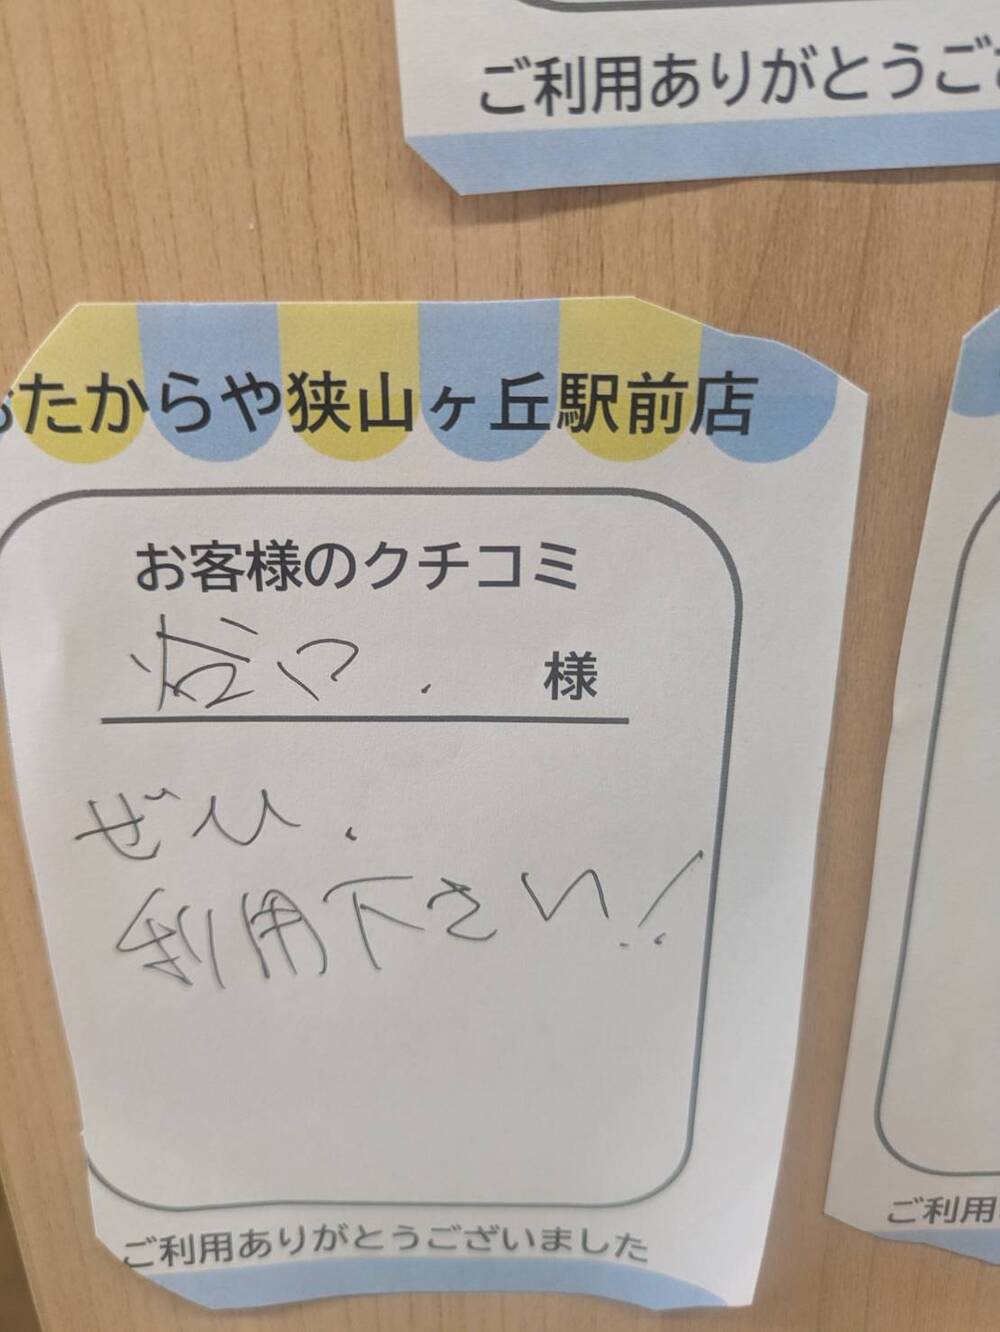 ご利用ありがとうござ
おたからや狭山ヶ丘駅前店
お客様のクチコミ
谷口. 様
ぜひ.
利用下さい!
ご利用ありがとうございました
ご利用